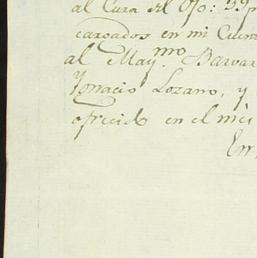 al Cura del Oso: 39p
cargados en mi Cuen
al May.mo Barvar
Ygnacio Lozano, y
ofrecido en el mes
Err